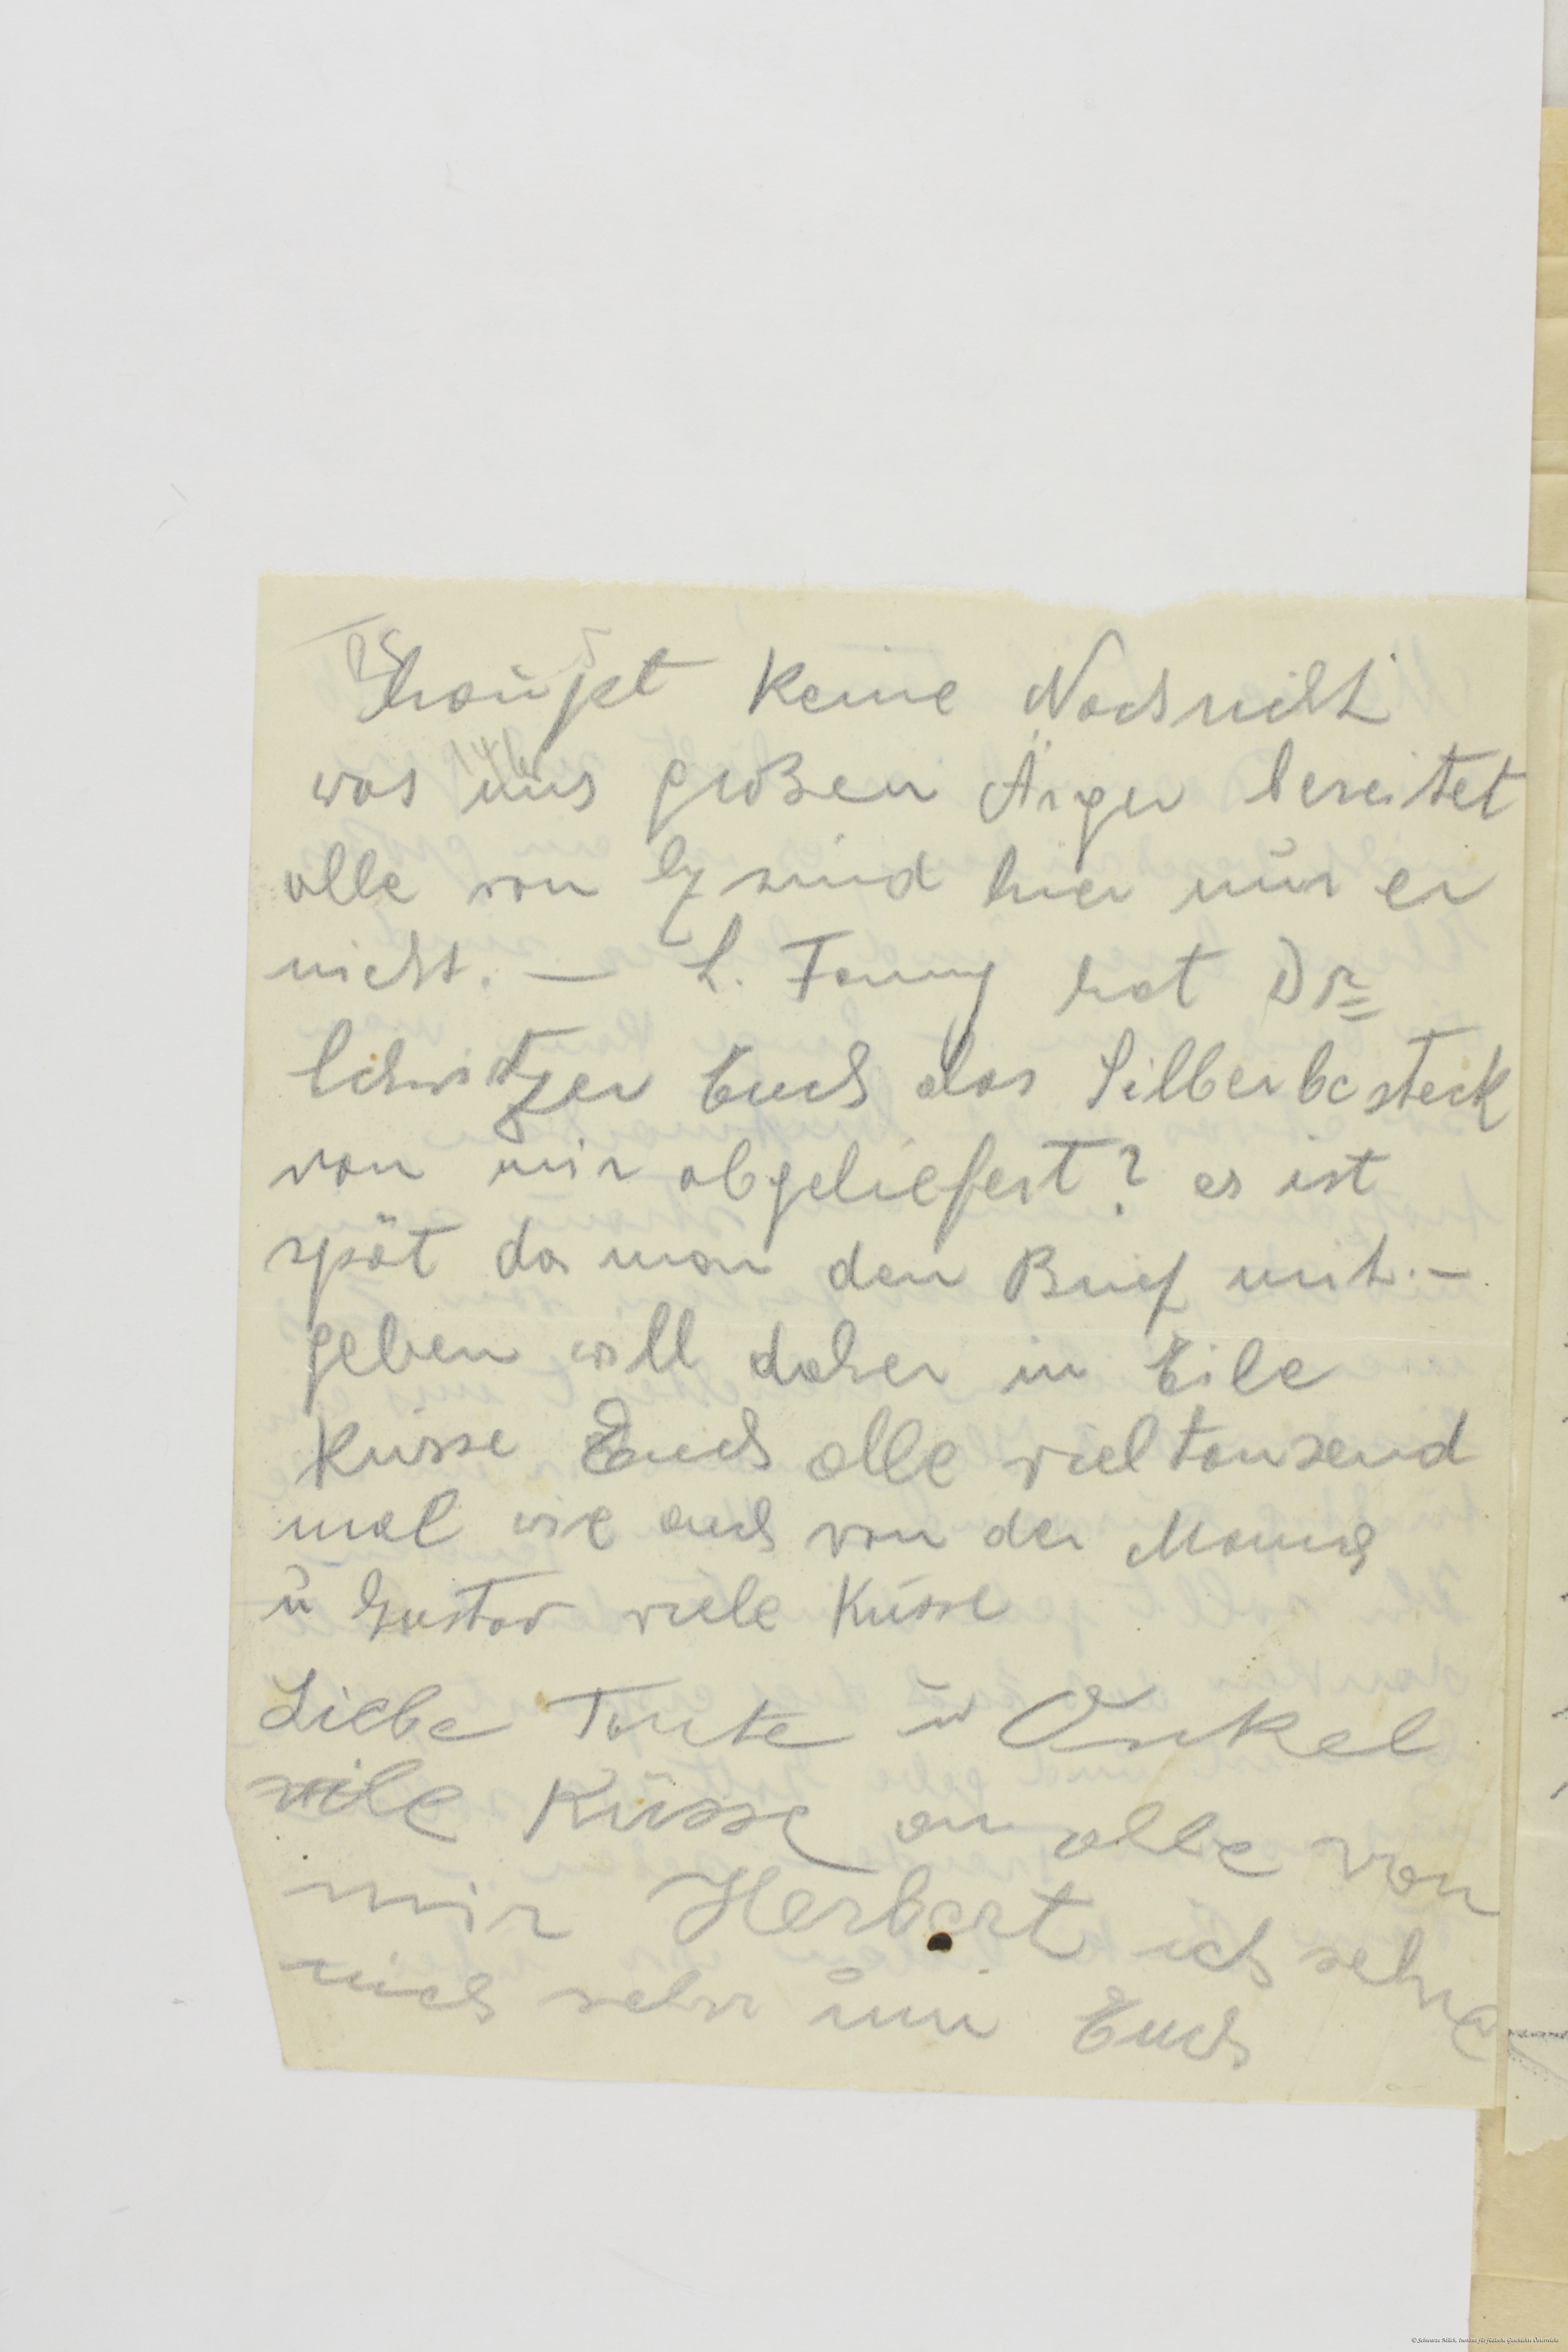 haupt keine Nachricht
was uns großen Ärger bereitet
alle von sind hier nur er
nicht. — L. Fanny hat Dr
Schwitzer Euch das Silberbesteck
von mir abgeliefert? es ist
spät da man den Brief mit.-
geben will daher in Eile
Küsse Euch alle vieltausend
mal wie auch von der Mama
u Gustav viele Küsse
Liebe Tante u Onkel
viele Küsse an alle von
mir Herbert ich sehne
mich sehr um Euch